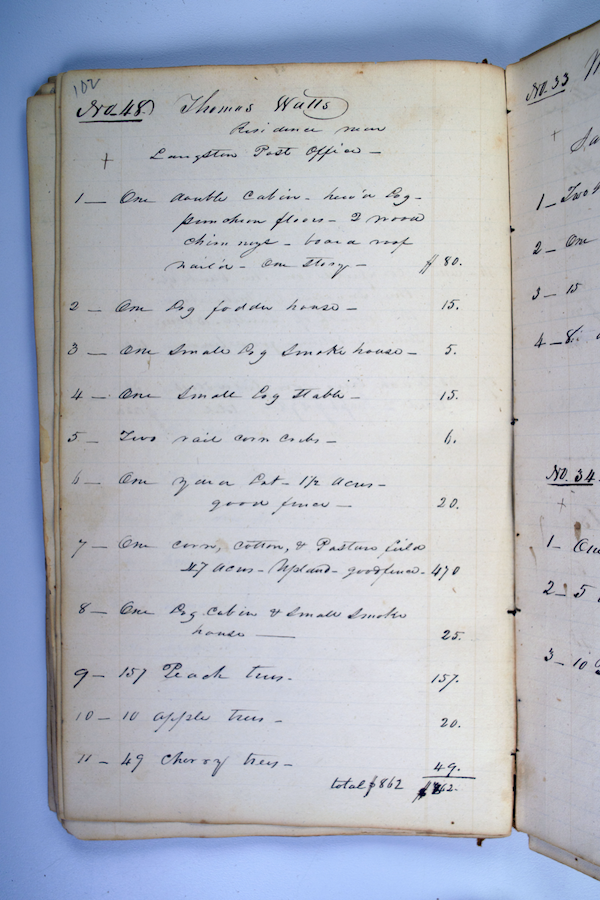 102
No. 48. Thomas Watts
Residence near
+ Langston Post Office —
1 — One double Cabin - hew'd Log -
puncheon floors - 2 wood
chimneys - board roof
nail'd - One Story — $80.
2 — One Log fodder house — 15.
3 — One Small Log Smoke house — 5.
4 — One Small Log Stable — 15.
5 — Two rail corn cribs — 6.
6 — One yard Lot - 1 1/2 Acres -
good fence — 20.
7 — One corn, cotton, & Pasture field
47 Acres - Upland - good fence - 470
8 — One Log Cabin & Small Smoke
house — 25.
9 — 157 Peach trees - 157.
10 — 10 apple trees - 20.
11 — 49 cherry trees — 49.
total $862 $862.
No. 33
+
1 — Two
2 — One
3 — 15
4 — 8
No. 34.
+
1 — One
2 — 5
3 — 10